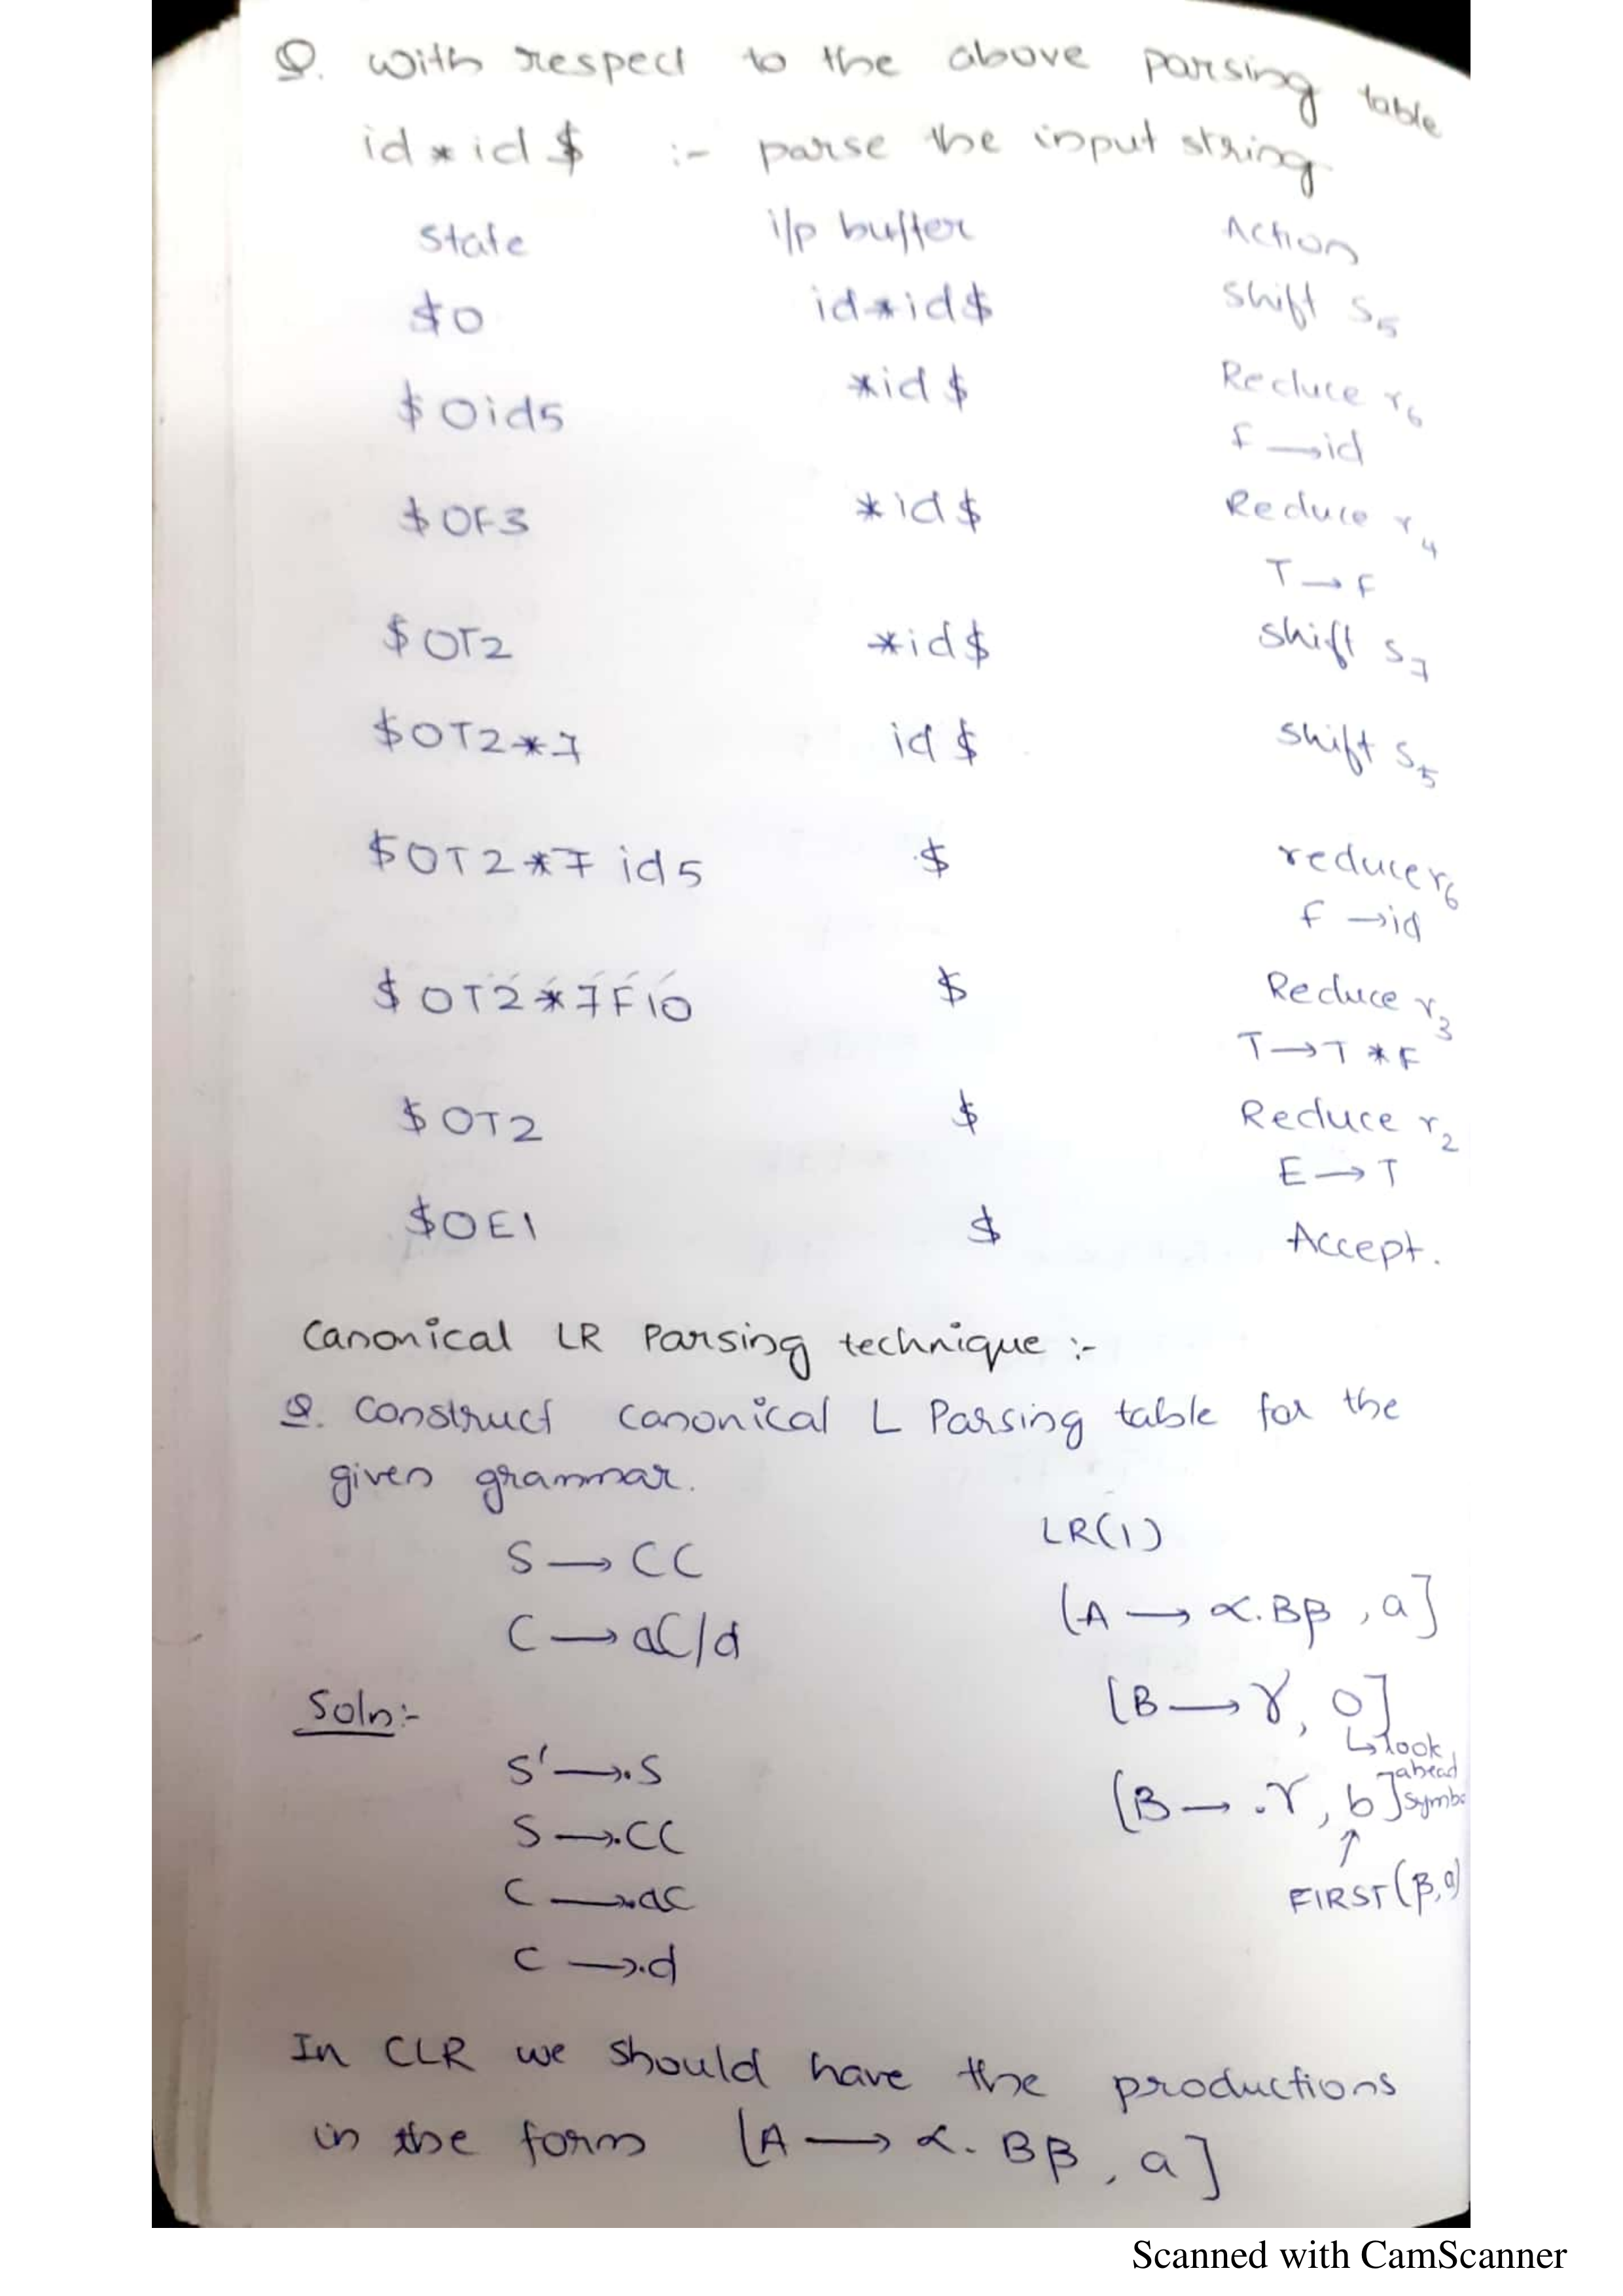 Q. With respect to the above parsing table
id * id $ :- parse the input string
State i/p buffer Action
$0 id*id$ Shift S5
$0id5 *id$ Reduce r6
F → id
$0F3 *id$ Reduce r4
T → F
$0T2 *id$ Shift S7
$0T2*7 id$ Shift S5
$0T2*7 id5 $ reduce r6
F → id
$0T2*7F10 $ Reduce r3
T → T * F
$0T2 $ Reduce r2
E → T
$0E1 $ Accept.
Canonical LR Parsing technique :-
Q. Construct canonical L Parsing table for the
given grammar.
LR(1)
S → CC
[A → α.Bβ , a]
C → aC/d
[B → γ, a]
Soln:-
↳ look
ahead
S' → .S
[B → .γ, b] Symbo
S → .CC
↑
C → .aC
FIRST(β,a)
C → .d
In CLR we should have the productions
in the form [A → α. Bβ , a]
Scanned with CamScanner